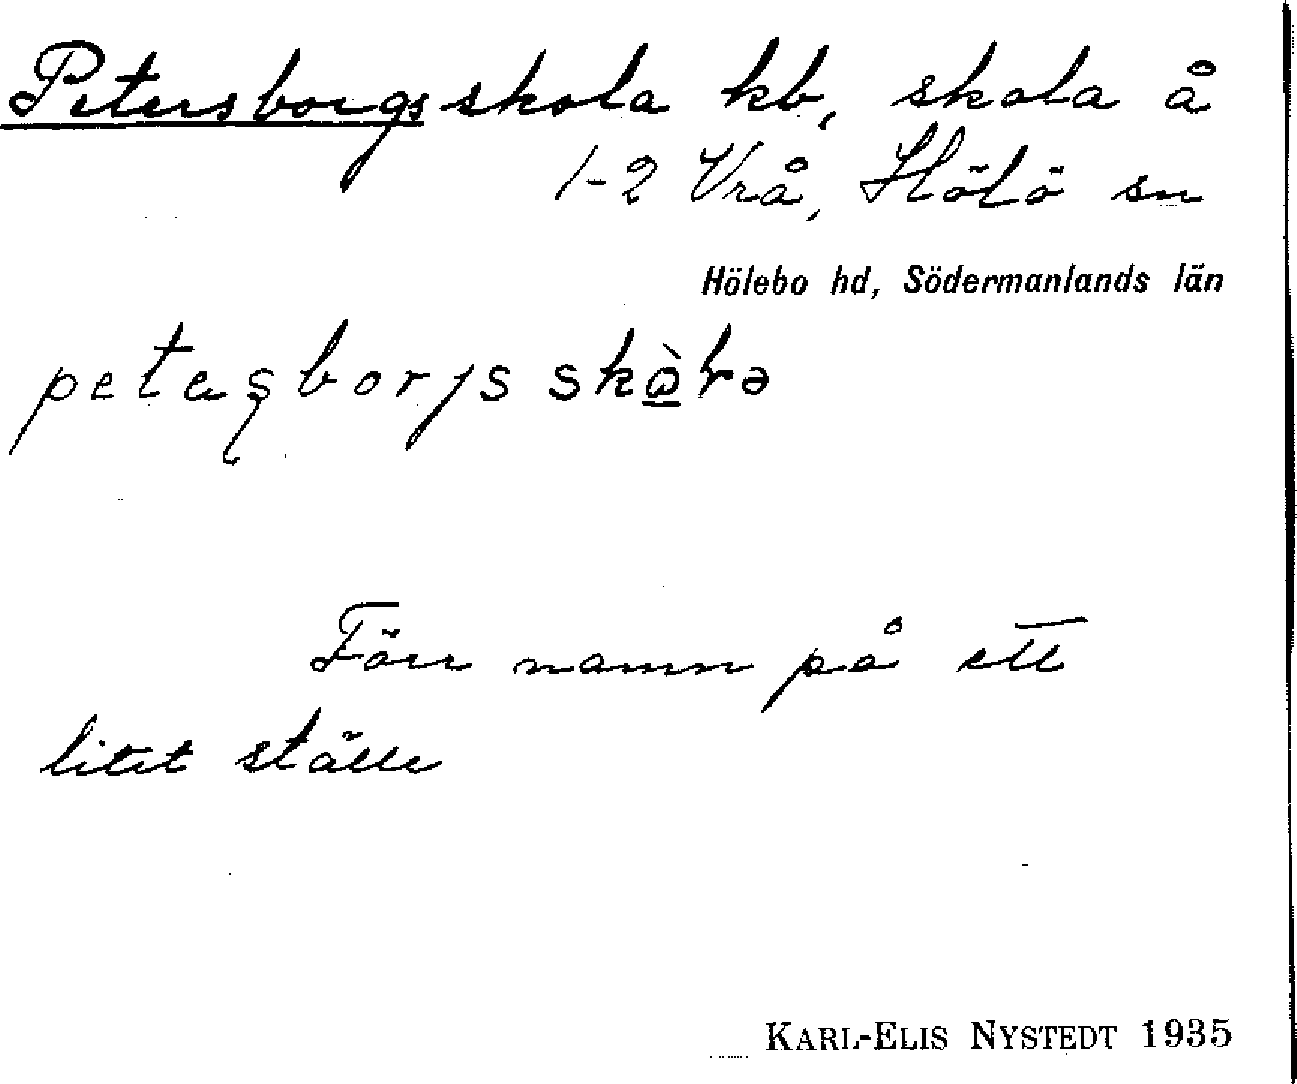 Petersborgs skola kb, skola å
1-2 Vrå, Hölö sn
Hölebo hd, Södermanlands län
petaʂborjs skò̱ɽa
Förr namn på ett
litet ställe
KARL-ELIS NYSTEDT 1935